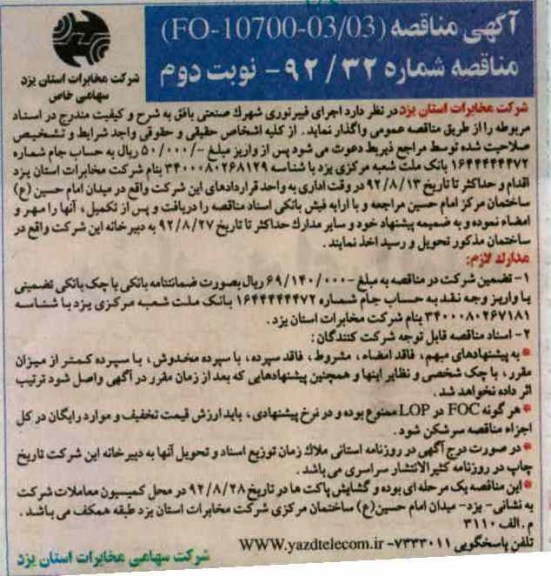 آگهی مناقصه (FO-10700-03/03)
مناقصه شماره ۹۲/۳۲- نوبت دوم
شرکت مخابرات استان یزد
سهامی خاص
شرکت مخابرات استان یزد در نظر دارد اجرای فیبرنوری شهرک صنعتی بافق به شرح و کیفیت مندرج در اسناد
مربوطه را از طریق مناقصه عمومی واگذار نماید. از کلیه اشخاص حقیقی و حقوقی واجد شرایط و تشخیص
صلاحیت شده توسط مراجع ذیربط دعوت می شود پس از واریز مبلغ -/۵۰/۰۰۰ ریال به حساب جام شماره
۱۶۴۴۴۴۴۴۷۲ بانک ملت شعبه مرکزی یزد با شناسه ۳۴۰۰۰۸۰۲۶۸۱۲۹ بنام شرکت مخابرات استان یزد
اقدام و حداکثر تا تاریخ ۹۲/۸/۱۳ در وقت اداری به واحد قراردادهای این شرکت واقع در میدان امام حسین (ع)
ساختمان مرکز امام حسین مراجعه و با ارایه فیش بانکی اسناد مناقصه را دریافت و پس از تکمیل، آنها را مهر و
امضاء نموده و به ضمیمه پیشنهاد خود و سایر مدارک حداکثر تا تاریخ ۹۲/۸/۲۷ به دبیرخانه این شرکت واقع در
ساختمان مذکور تحویل و رسید اخذ نمایند.
مدارک لازم:
۱- تضمین شرکت در مناقصه به مبلغ -/۶۹/۱۴۰/۰۰۰ ریال بصورت ضمانتنامه بانکی یا چک بانکی تضمینی
یا واریز وجه نقد به حساب جام شماره ۱۶۴۴۴۴۴۴۷۲ بانک ملت شعبه مرکزی یزد با شناسه
۳۴۰۰۰۸۰۲۶۷۱۸۱ بنام شرکت مخابرات استان یزد.
۲- اسناد مناقصه قابل توجه شرکت کنندگان:
* به پیشنهادهای مبهم، فاقد امضاء، مشروط، فاقد سپرده، با سپرده مخدوش، با سپرده کمتر از میزان
مقرر، با چک شخصی و نظایر اینها و همچنین پیشنهادهایی که بعد از زمان مقرر در آگهی واصل شود ترتیب
اثر داده نخواهد شد.
* هر گونه FOC در LOP ممنوع بوده و در نرخ پیشنهادی، باید ارزش قیمت تخفیف و موارد رایگان در کل
اجزاء مناقصه سرشکن شود.
* در صورت درج آگهی در روزنامه استانی ملاک زمان توزیع اسناد و تحویل آنها به دبیرخانه این شرکت تاریخ
چاپ در روزنامه کثیرالانتشار سراسری می باشد.
* این مناقصه یک مرحله ای بوده و گشایش پاکت ها در تاریخ ۹۲/۸/۲۸ در محل کمیسیون معاملات شرکت
به نشانی- یزد- میدان امام حسین(ع) ساختمان مرکزی شرکت مخابرات استان یزد طبقه همکف می باشد.
م.الف ۳۱۱۰
تلفن پاسخگویی ۷۳۳۳۰۱۱- WWW.yazdtelecom.ir
شرکت سهامی مخابرات استان یزد